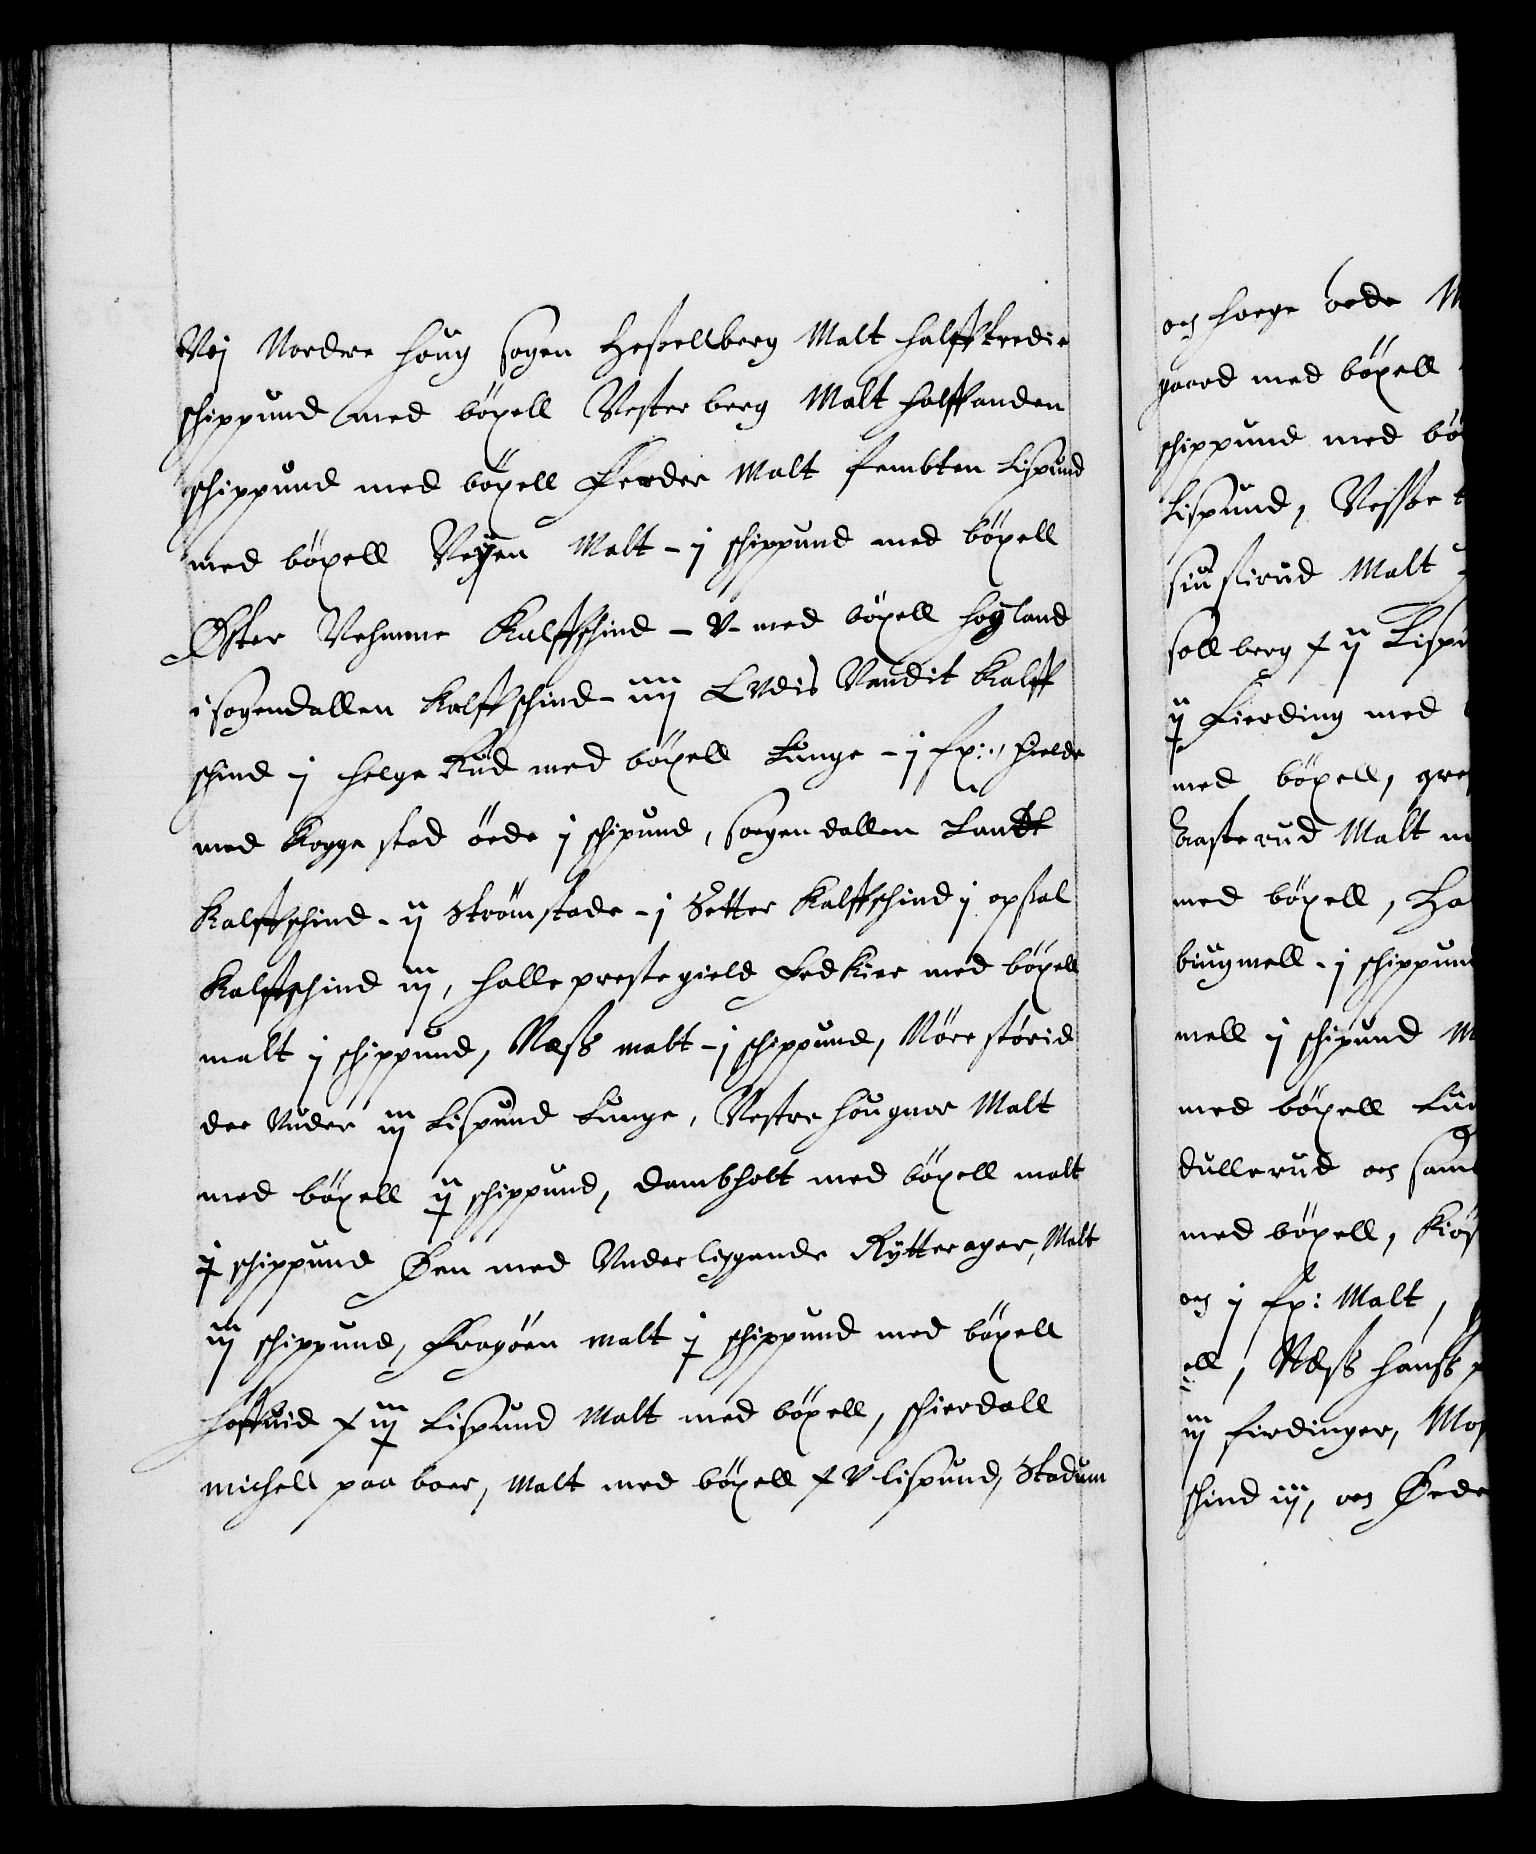 Voj Nordre Houg sogen Heßellberg Malt halfftredie
schippund med böxell Vester berg Malt halffanden
schippund med böxell Ferder Malt fembten Lispund
med böxell Veyen Malt - j schippund med böxell
Øster Vehmme Kalffschind - v - med böxell Hogland
i sogendallen Kalffschind - iiij LVdis Vandit Kalff
schind - j Helge Rud med böxell Tunge - j sp:, Hielde
med Kogge stad öede j schipund, sogen dallen Landt
Kalffschind - ij Strömstade - j Setter Kalffschind j opsal
Kalffschind iij, Halle prestegield Fedkier med böxell
malt j schippund, Næss malt - j schippund, Nörestörid
der Vnder iij Lispund Tunge, Vestre Hougner Malt
med böxell ij schippund, Dambholt med böxell malt
j schippund Øen med Vnderliggende Rytterager, Malt
iij schippund, Fragöen malt j schippund med böxell
Hoffuid x iij Lispund Malt med böxell, schierdall
michell paa boer, Malt med böxell x V lispund, Stadum
och Horge öede M
gaard med böxell
schippund med bö
Lispund, Vessöe t
siustirud Malt
soll berg x ij Lispu
ij Fierding med
med böxell, gre
braste rud Malt m
med böxell, Ha
biugmell - j schippun
mell j schipund M
med böxell Tun
Dullerud och samt
med böxell, Kiös
och j sp: Malt,
ell, Næss Hanss
iij fierdinger, Mos
schind iij, och Øede